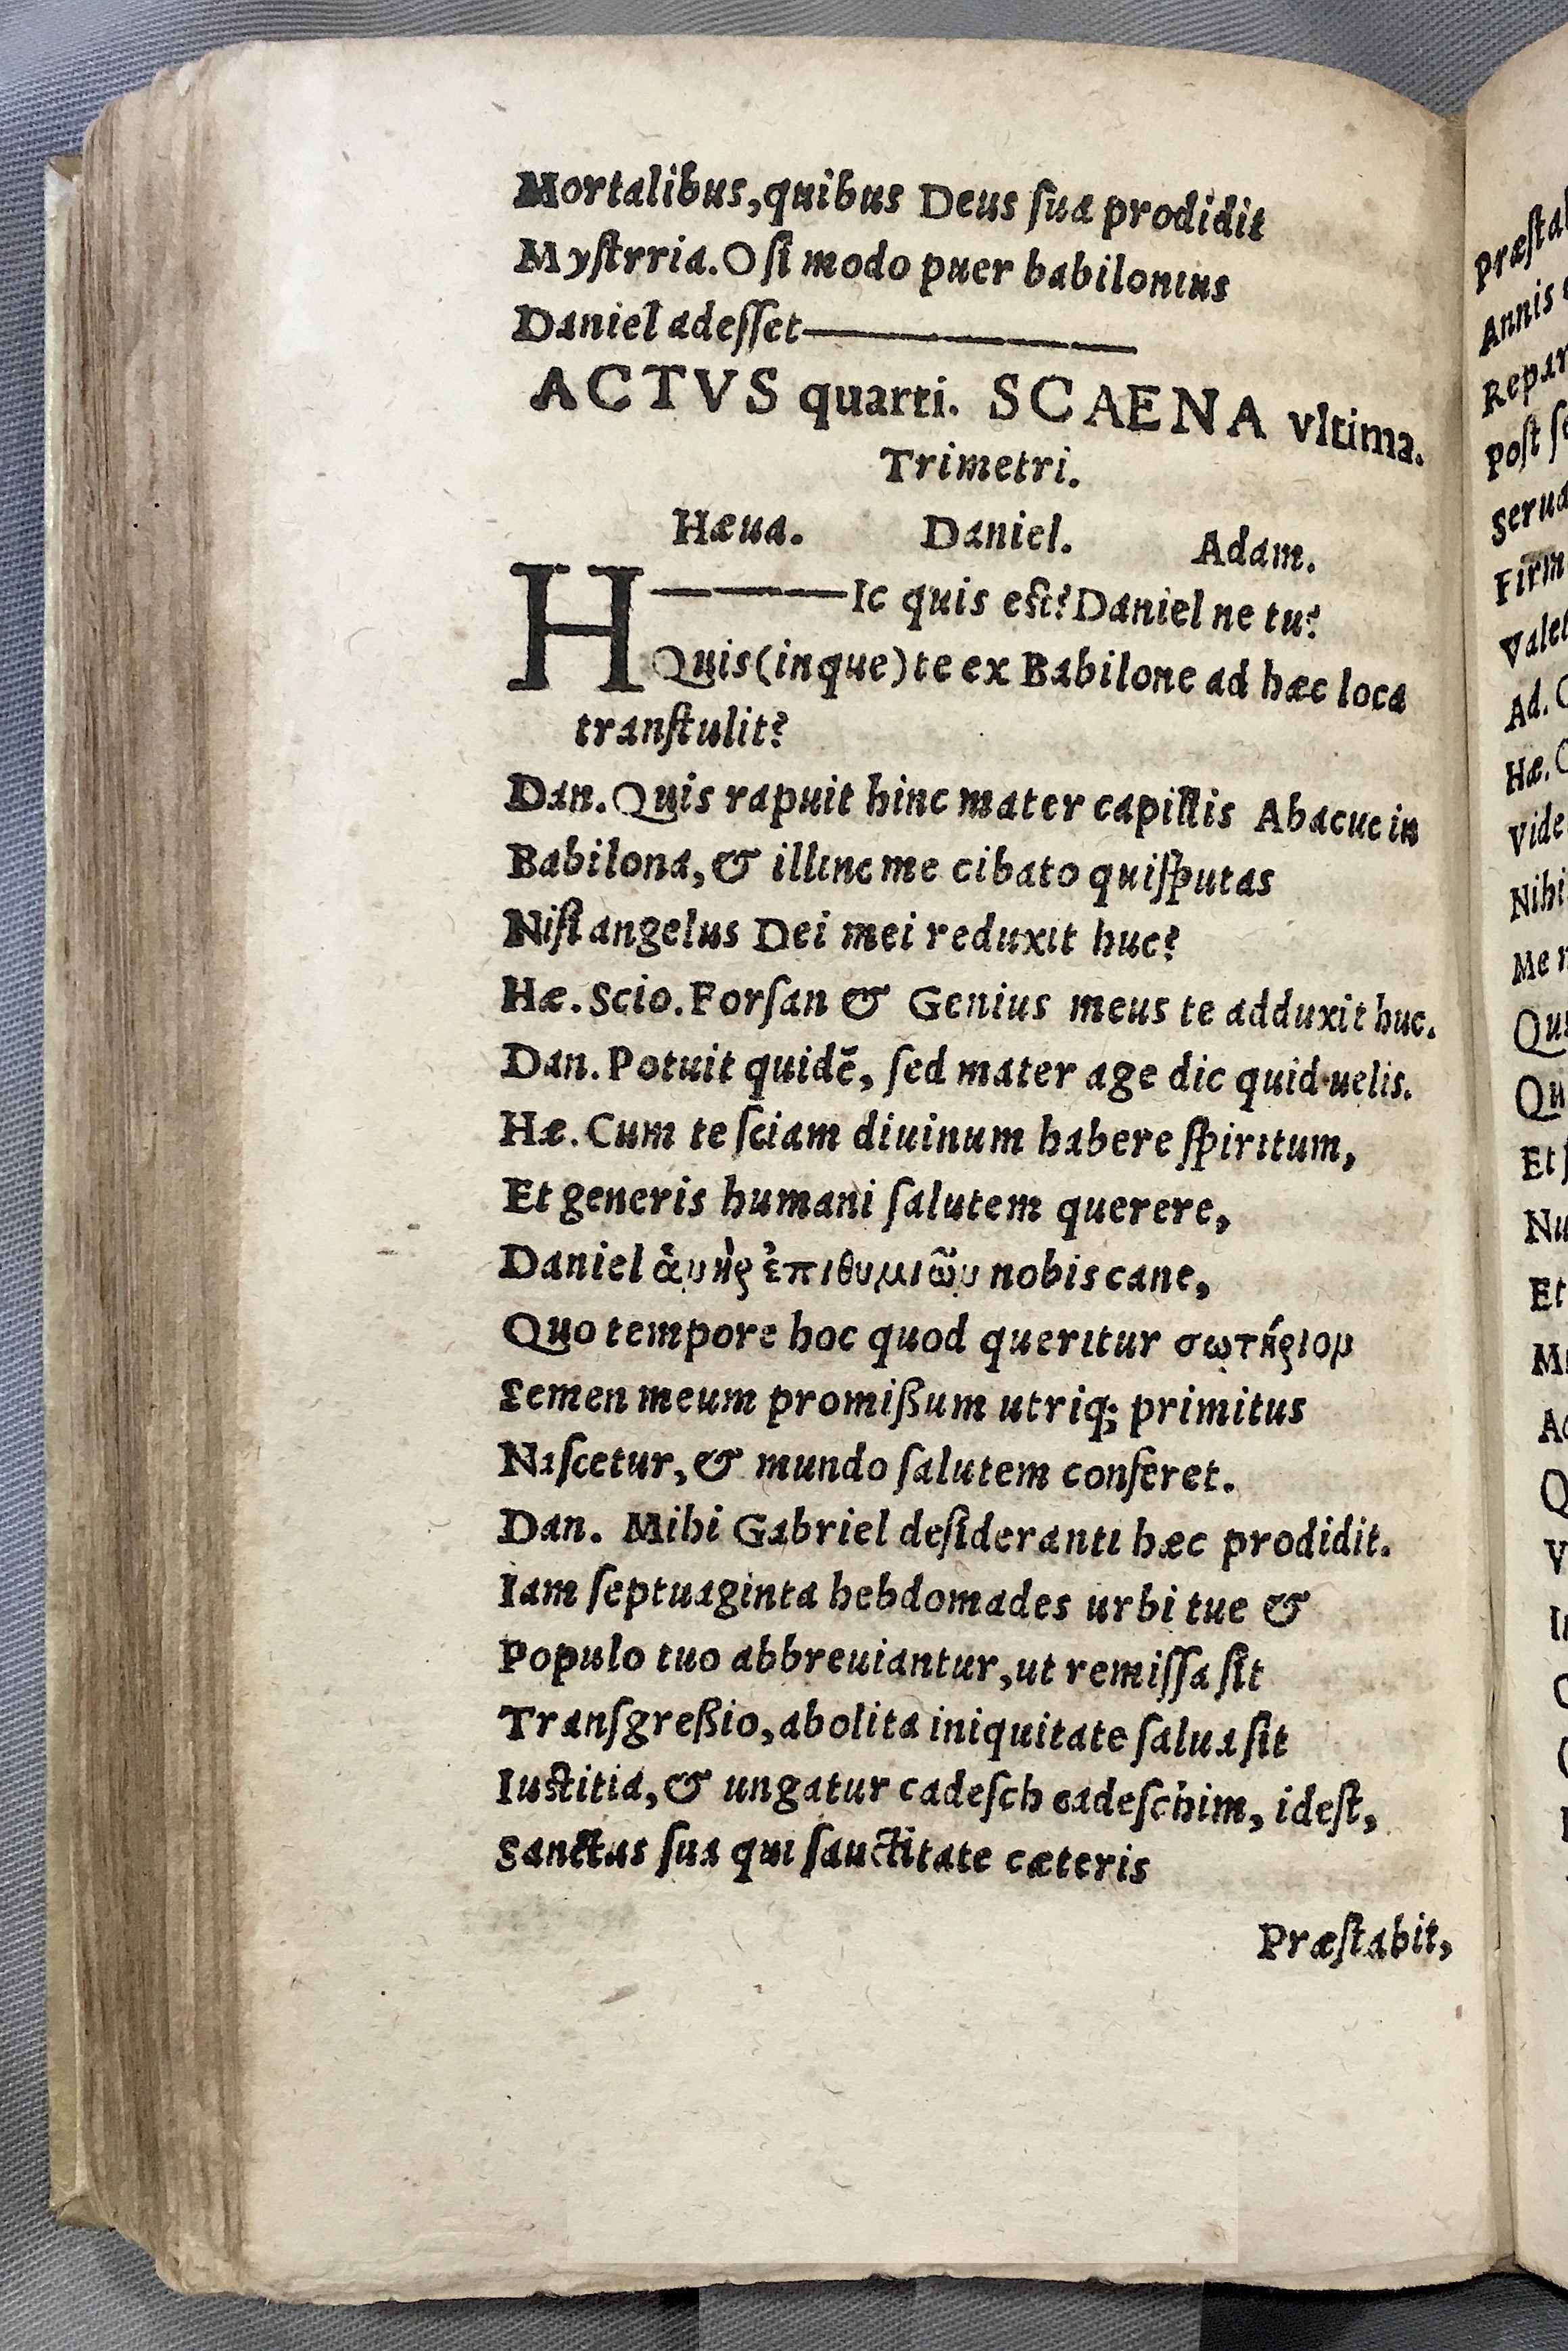 Mortalibus,quibus Deus ſua prodidit
Myſtrria.O ſi modo puer babilonius
Daniel adeſſet————
ACTVS quarti. SCAENA vltima.
Trimetri.
Hæua. Daniel. Adam.
H———Ic quis eſt? Daniel ne tu?
Quis(inque)te ex Babilone ad hæc loca
tranſtulit?
Dan. Quis rapuit hinc mater capillis Abacuc in
Babilona, & illinc me cibato quiſputas
Niſi angelus Dei mei reduxit huc?
Hæ. Scio. Forſan & Genius meus te adduxit huc.
Dan. Potuit quidē, ſed mater age dic quid uelis.
Hæ. Cum te ſciam diuinum habere ſpiritum,
Et generis humani ſalutem querere,
Daniel ἀνὴρ ἐπιθυμιῶν nobis cane,
Quo tempore hoc quod queritur σωτήριον
Semen meum promißum utriq; primitus
Naſcetur, & mundo ſalutem conferet.
Dan. Mihi Gabriel deſideranti hæc prodidit.
Iam ſeptuaginta hebdomades urbi tue &
Populo tuo abbreuiantur,ut remiſſa ſit
Tranſgreßio,abolita iniquitate ſalua ſit
Iuſtitia, & ungatur cadeſch cadeſchim, ideſt,
Sanctus ſua qui ſauctitate cæteris
Præſtabit,
Præſta
Annis
Repar
Poſt ſe
Serua
Firm
Valet
Ad.
Hæ.
Vide
Nihi
Me
Qui
Qu
Et
Nu
Et